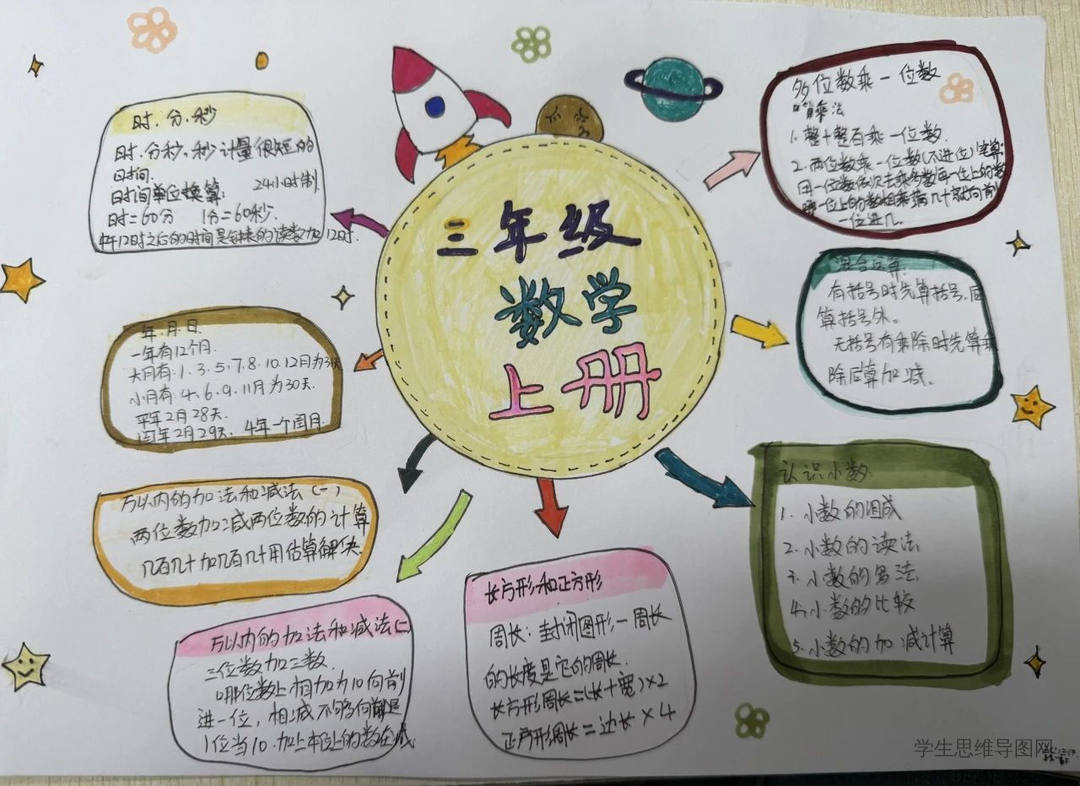 三年级
数学
上册
时.分.秒
时.分秒.秒计量很短的
时间.
时间单位换算: 24小时制
时=60分 1分=60秒.
中午12时之后的时间是钟表的读数加12时.
年.月.日.
一年有12个月.
大月有:1.3.5.7.8.10.12月为31天
小月有:4.6.9.11月为30天.
平年2月28天.
闰年2月29天. 4年一个闰月.
万以内的加法和减法(一)
两位数加减两位数的计算
几百几十加几百几十用估算解决.
万以内的加法和减法(二
三位数加三数.
哪位数上相加为10向前
进一位,相减不够向前退
1位当10.加上本位上的数在减
长方形和正方形
周长:封闭图形一周长
的长度是它的周长.
长方形周长=(长+宽)×2
正方形周长=边长×4
多位数乘一位数
口算乘法
1.整十整百乘一位数.
2.两位数乘一位数(不进位)笔算:
用一位数依次去乘多数每一位上的数
哪一位上的数相乘满几十就向前
一位进几.
混合运算.
有括号时先算括号.后
算括号外。
无括号有乘除时先算乘
除后算加减。
认识小数.
1.小数的组成
2.小数的读法
3.小数的写法
4.小数的比较
5.小数的加减计算
学生思维导图网